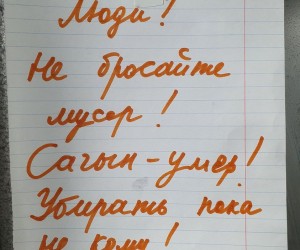 Люди!
Не бросайте
мусор!
Сагын - умер!
Убирать пока
не кому!